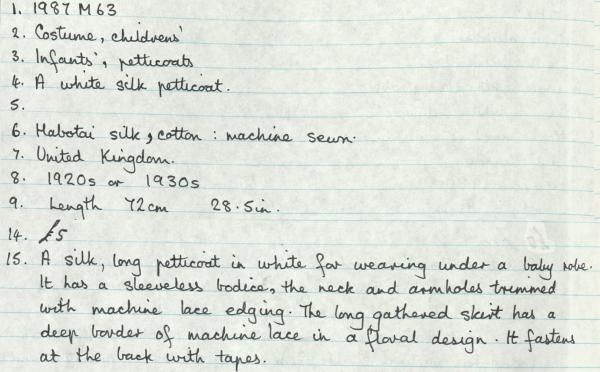 1. 1987 M63
2. Costume, childrens'
3. Infants', petticoats
4. A white silk petticoat.
5.
6. Habotai silk, cotton : machine sewn.
7. United Kingdom.
8. 1920s or 1930s
9. Length 72cm 28.5in.
14. £5
15. A silk, long petticoat in white for wearing under a baby robe.
It has a sleeveless bodice, the neck and armholes trimmed
with machine lace edging. The long gathered skirt has a
deep border of machine lace in a floral design. It fastens
at the back with tapes.